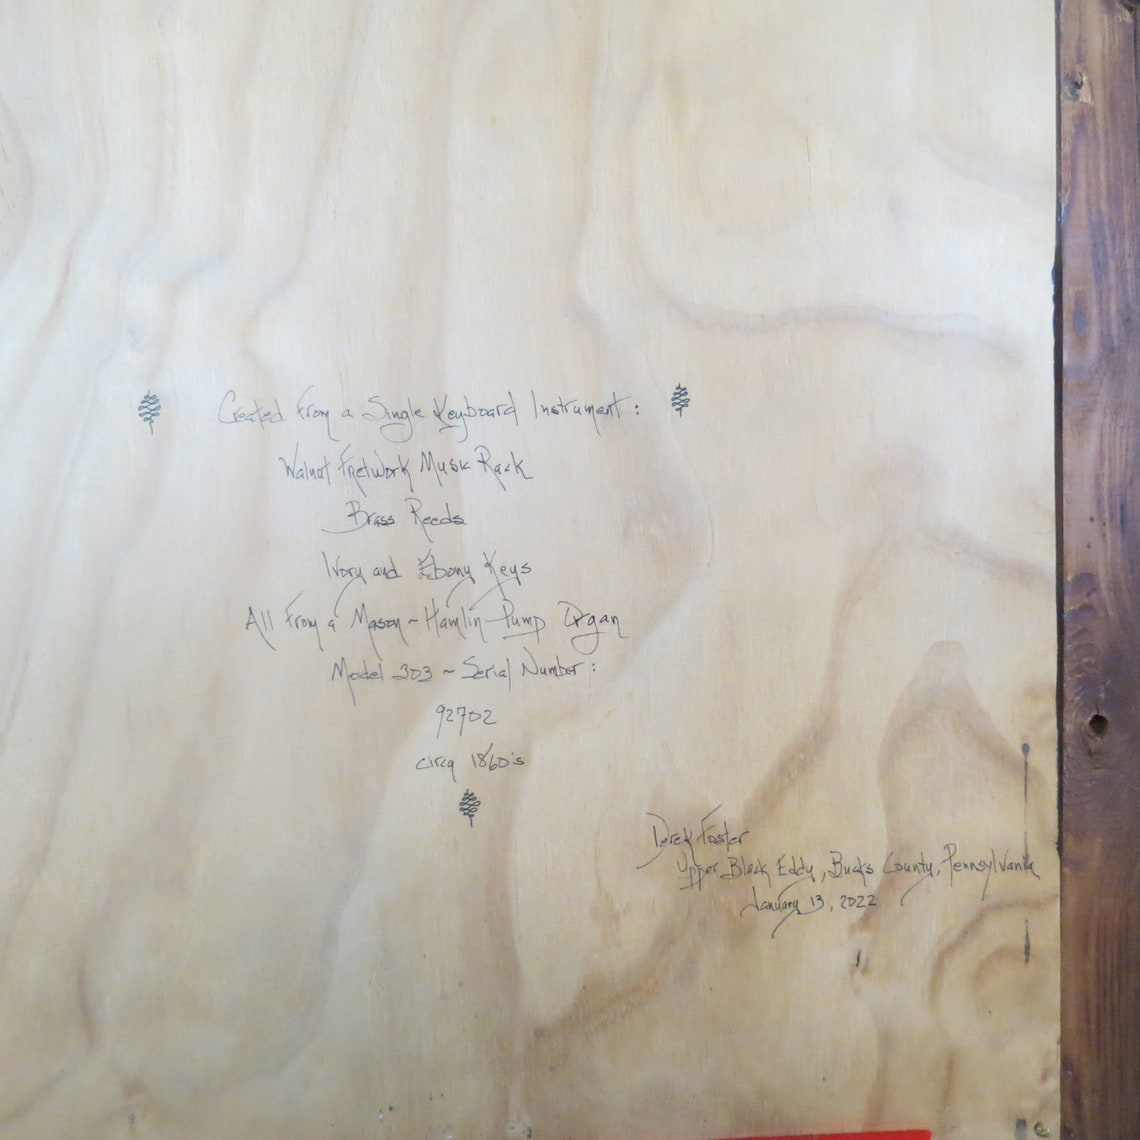 Created From a Single Keyboard Instrument:
Walnut Fretwork Music Rack
Brass Reeds
Ivory and Ebony Keys
All From a Mason~Hamlin Pump Organ
Model 303 ~ Serial Number:
92702
circa 1860's
Derek Foster
Upper Black Eddy, Bucks County, Pennsylvania
January 13, 2022